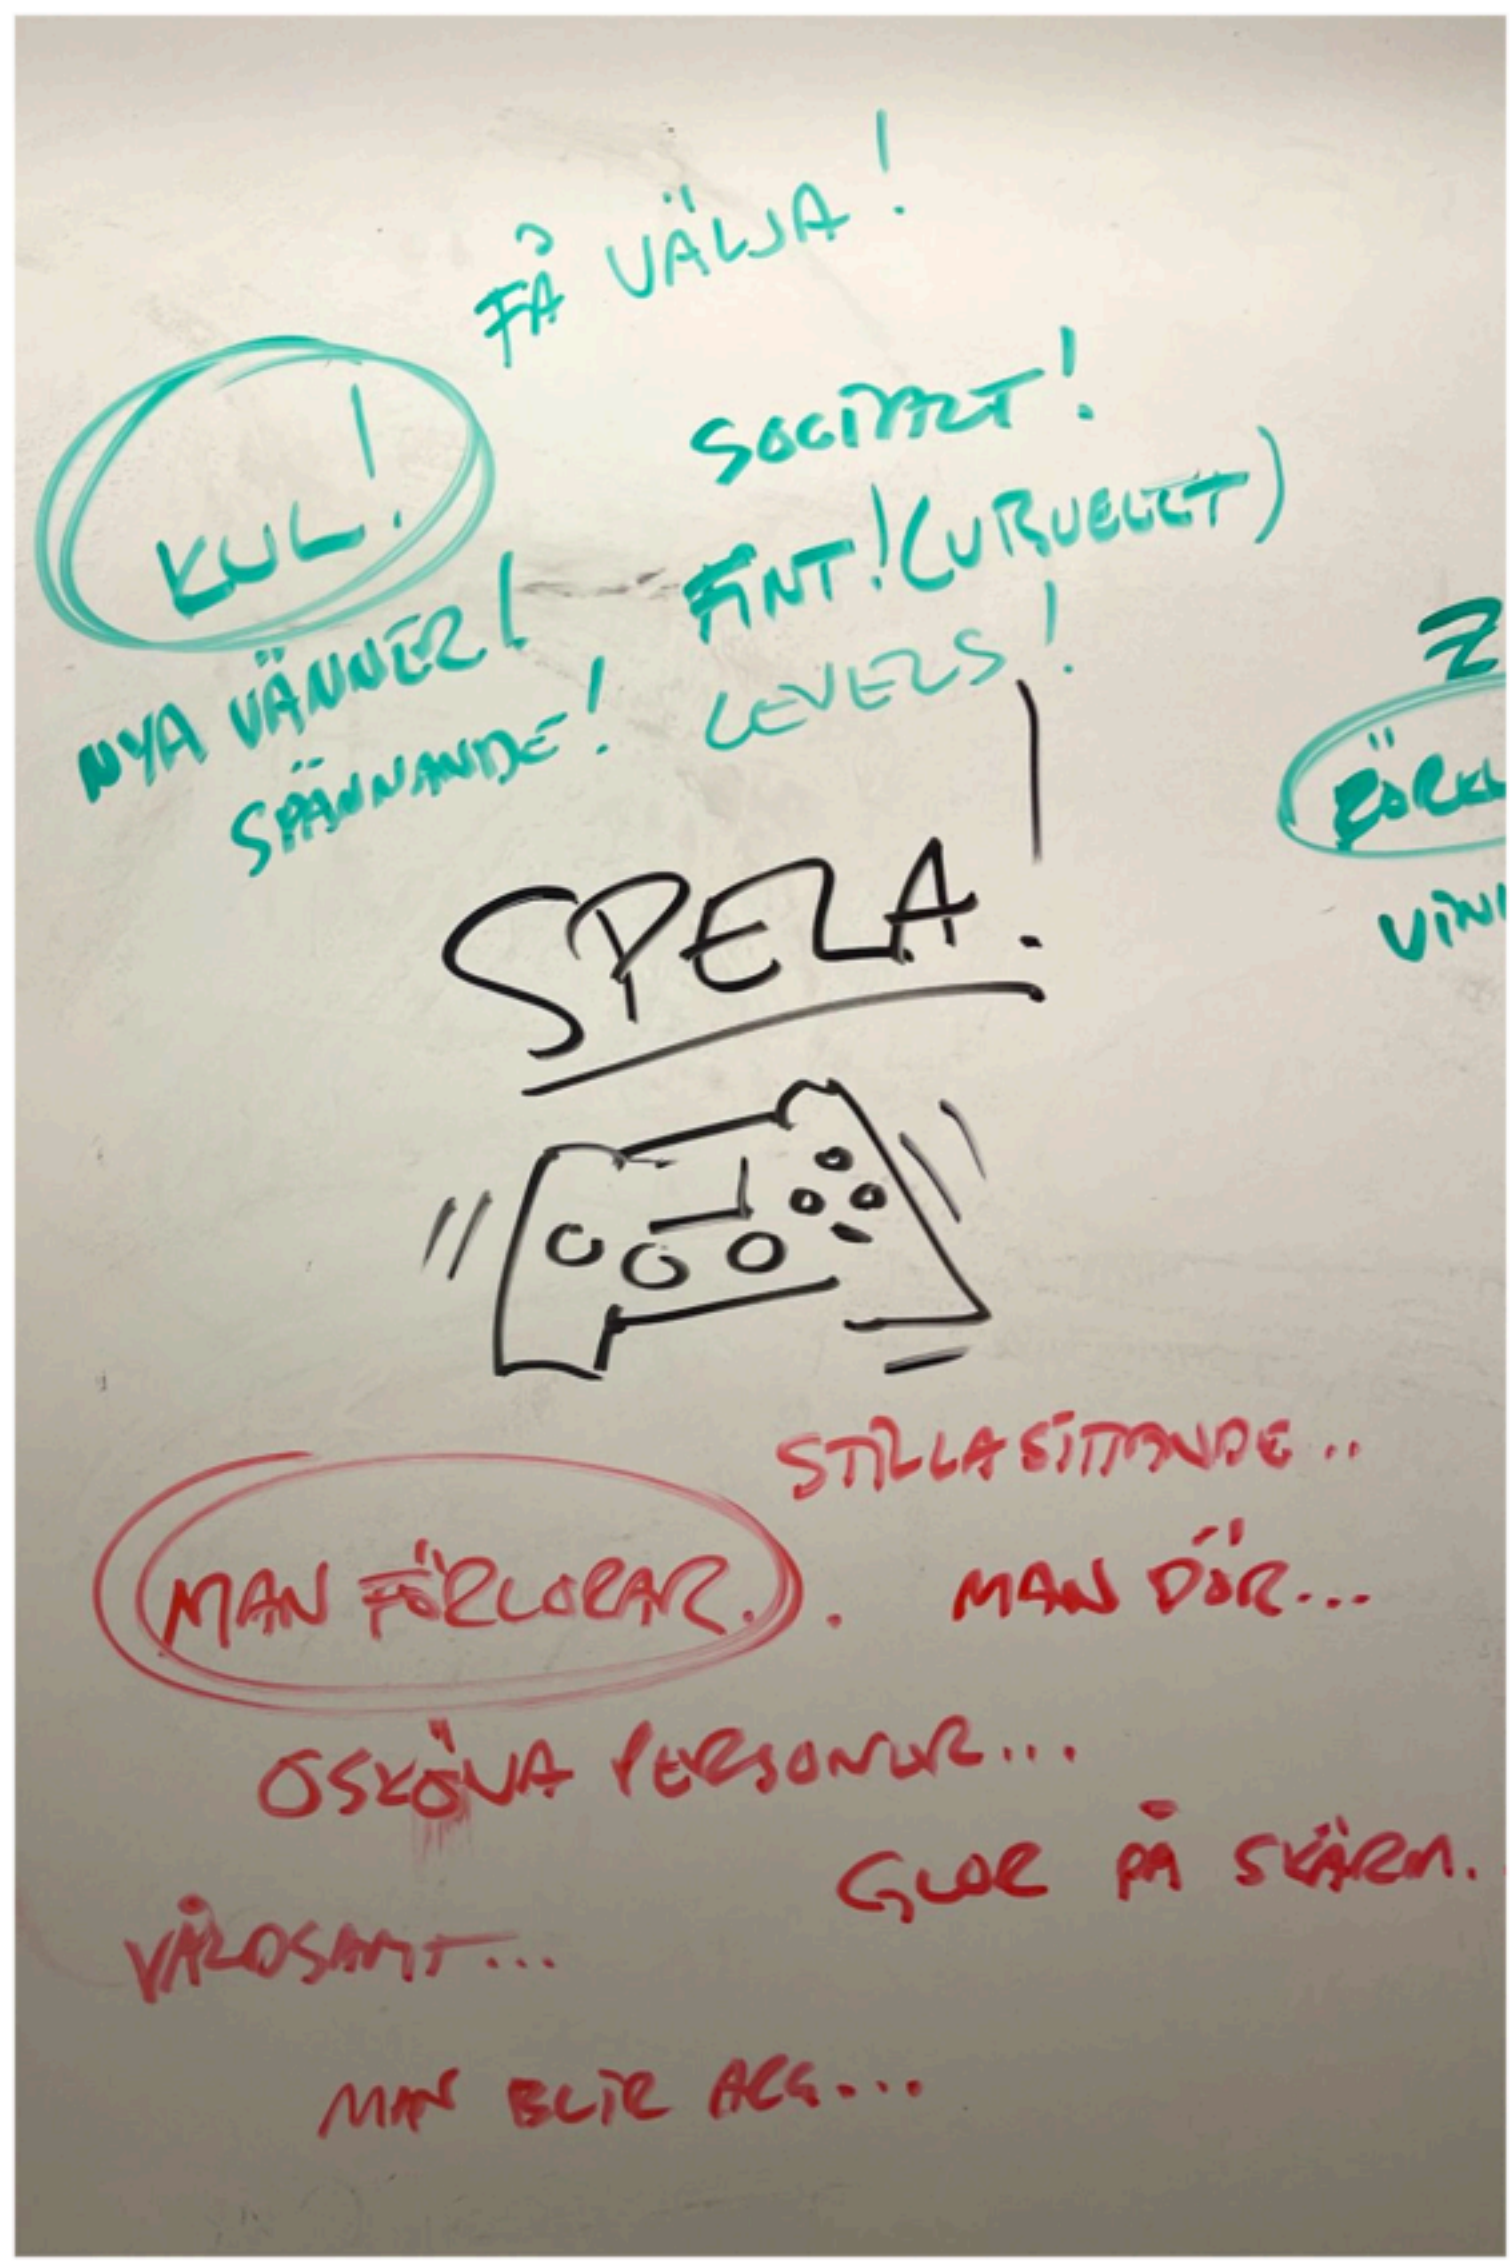 FÅ VÄLJA!
KUL!
SOCIALT!
FINT! (URVERKET)
NYA VÄNNER!
LEVELS!
SPÄNNANDE!
Z
SPELA!
STILLASITTANDE..
MAN FÖRLORAR...
MAN DÖR...
OSKÖNA PERSONER...
GLOR PÅ SKÄRM.
VÅLDSAMT...
MAN BLIR ARG...